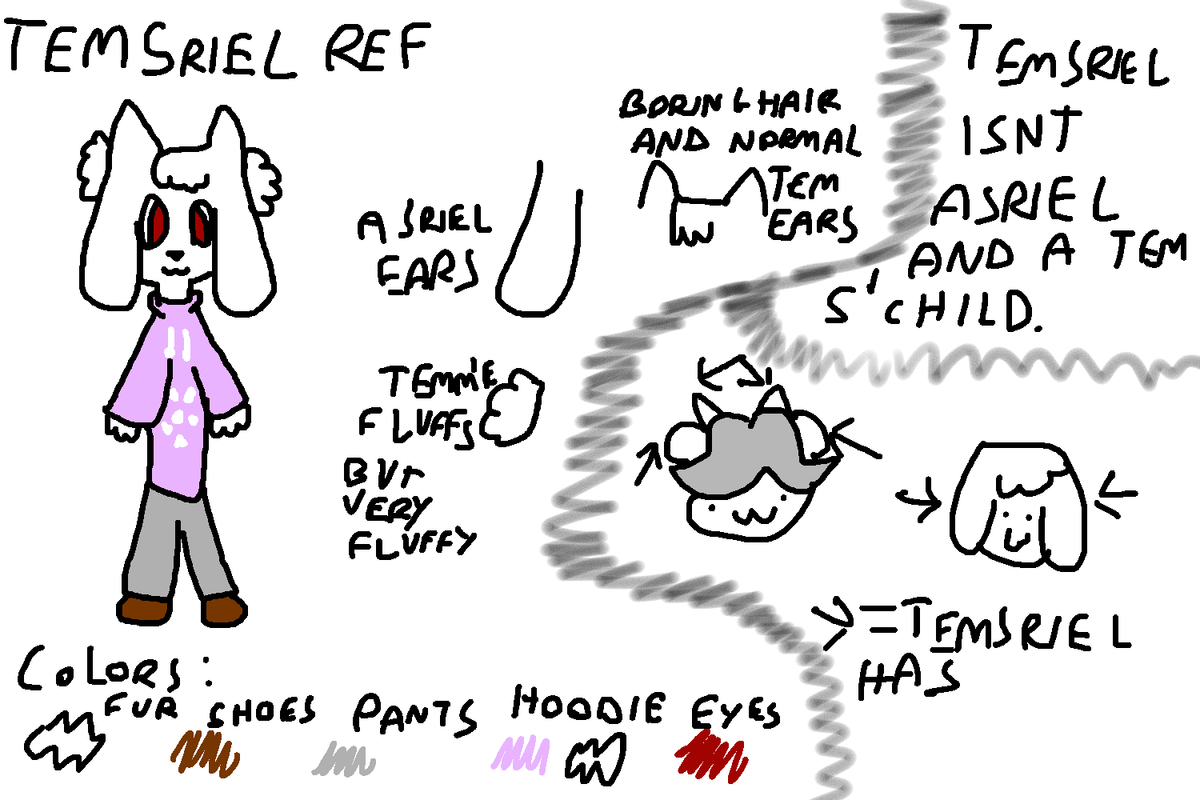 TEMSRIEL REF
ASRIEL
EARS
BORING HAIR
AND NORMAL
TEM
EARS
TEMSRIEL
ISNT
ASRIEL
AND A TEM
S' CHILD.
TEMMIE
FLUFFS
BUT
VERY
FLUFFY
=TEMSRIEL
HAS
COLORS:
FUR SHOES PANTS HOODIE EYES